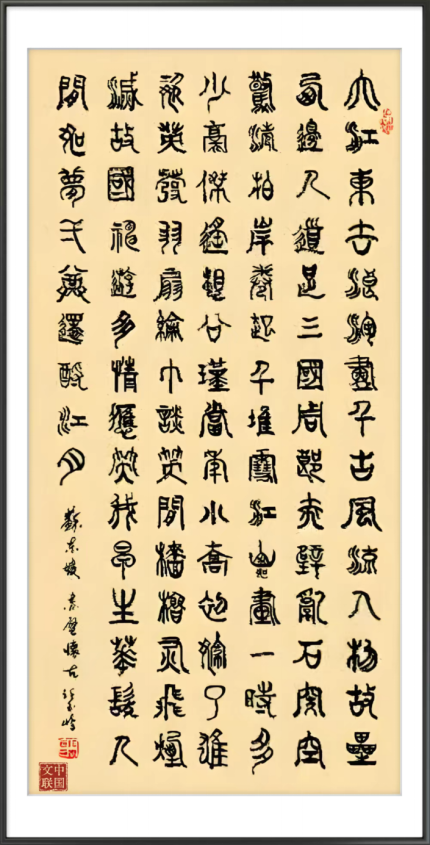 大江東去浪淘盡千古風流人物故壘
西邊人道是三國周郎赤壁亂石穿空
驚濤拍岸卷起千堆雪江山如畫一時多
少豪傑遙想公瑾當年小喬初嫁了雄
姿英發羽扇綸巾談笑間檣櫓灰飛煙
滅故國神遊多情應笑我早生華髮人
間如夢弌尊還酹江月
蘇東坡赤壁懷古
中国文联